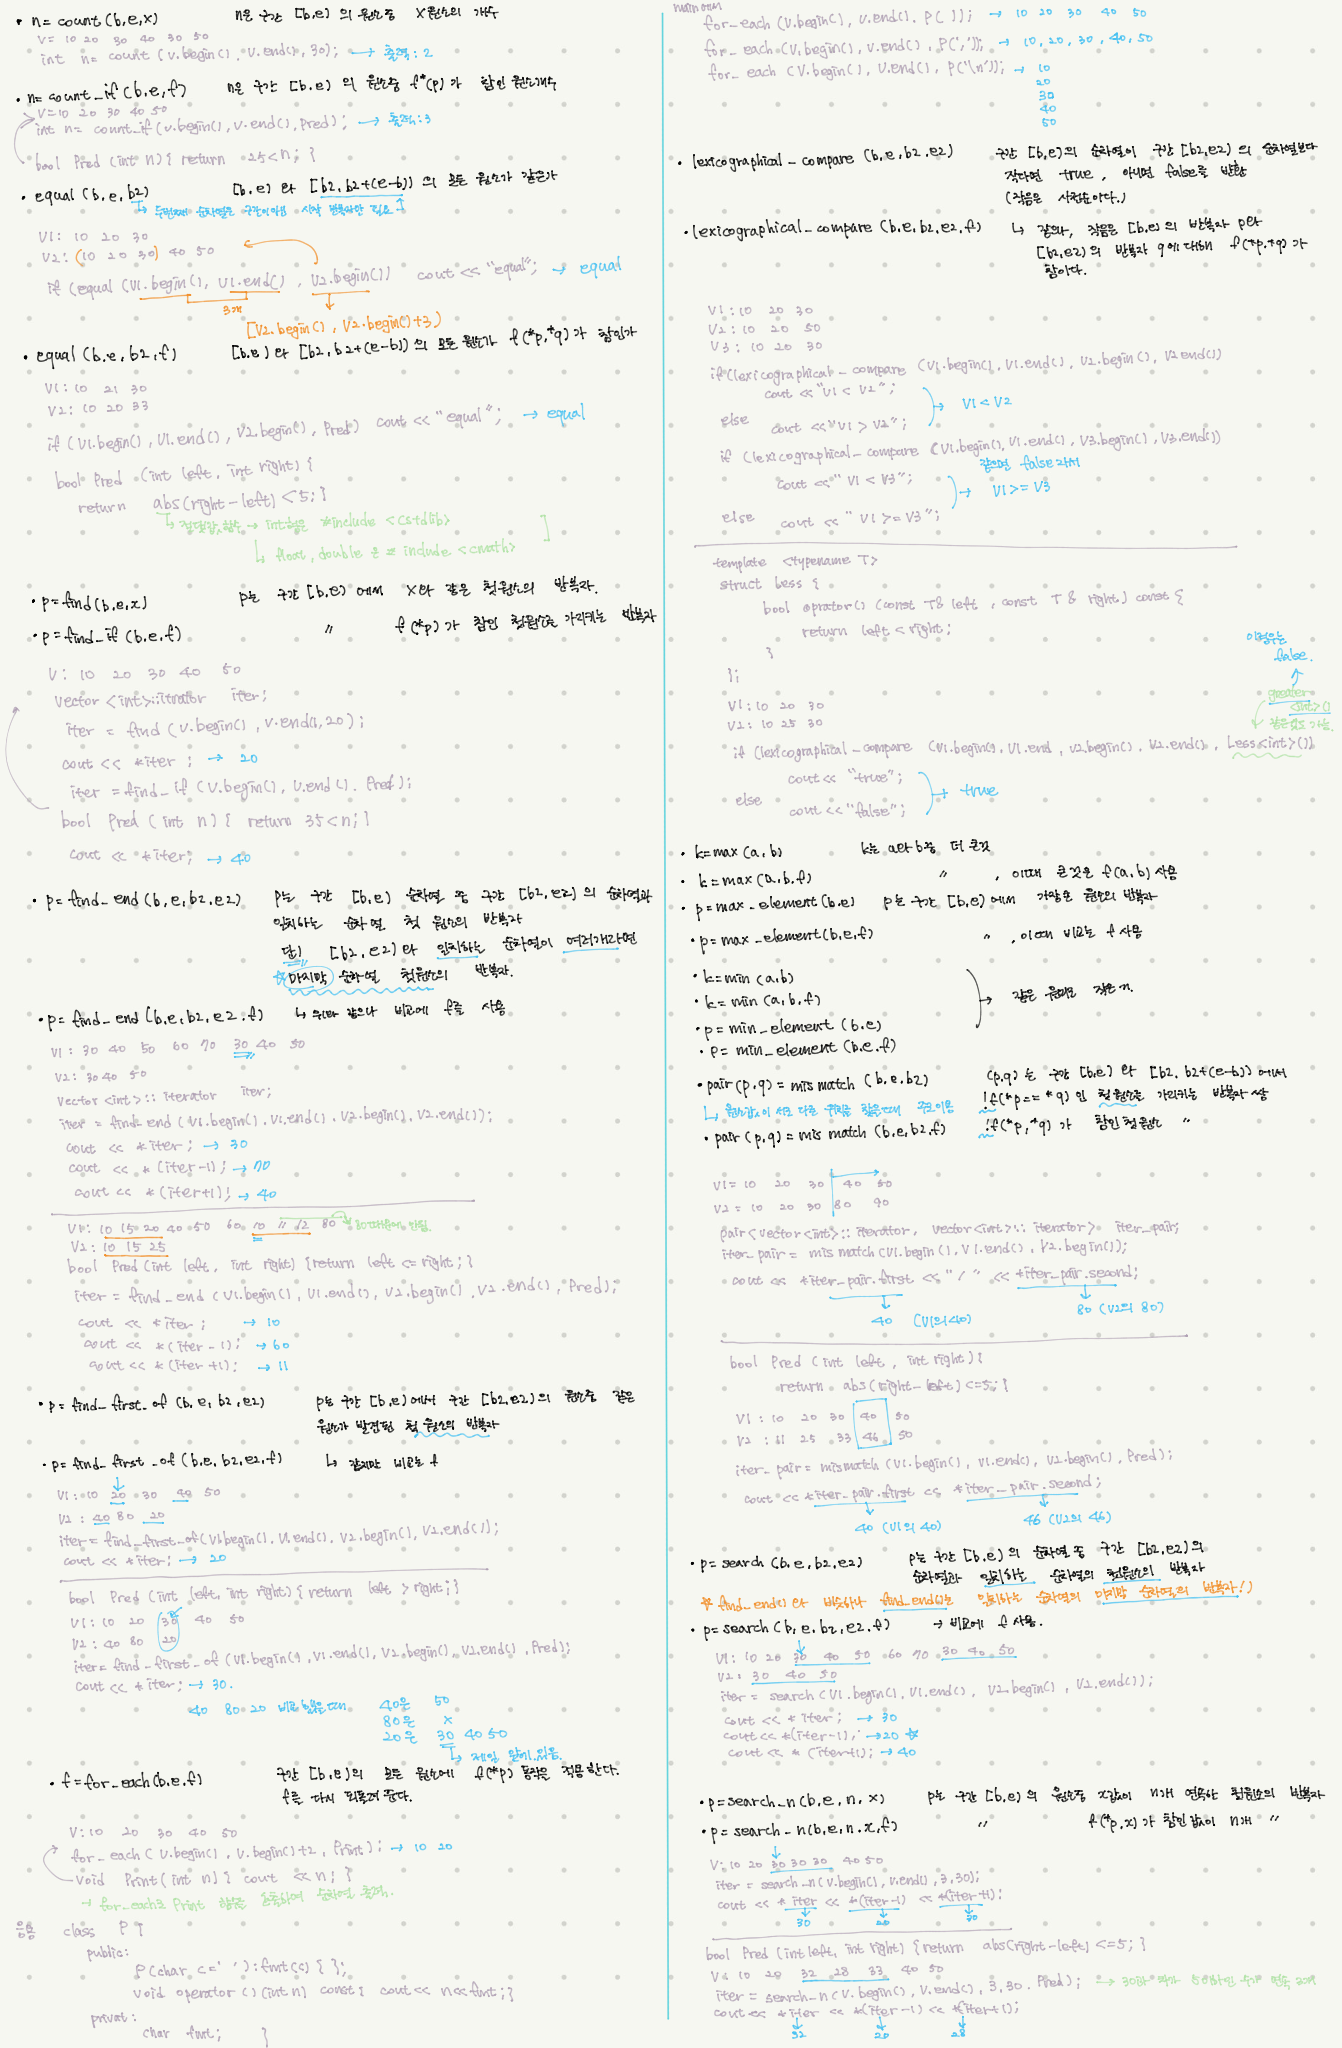 • n = count (b,e,x) n은 구간 [b,e) 의 원소중 X 원소의 개수
V = 10 20 30 40 30 50
int n = count (v.begin(), v.end(), 30); → 출력 : 2
• n = count_if (b,e,f) n은 구간 [b,e) 의 원소중 f*(p)가 참인 원소개수
V = 10 20 30 40 50
int n = count_if (v.begin(), v.end(), Pred); → 출력 : 3
bool Pred (int n) { return 25 < n; }
• equal (b,e,b2) [b,e) 와 [b2, b2+(e-b)) 의 모든 원소가 같은가
↳ 두번째 순차열은 구간이아님 시작 반복자만 필요
V1: 10 20 30
V2: (10 20 30) 40 50
if (equal (V1.begin(), V1.end(), V2.begin()) cout << "equal"; → equal
3개
[V2.begin(), V2.begin()+3)
• equal (b,e,b2,f) [b,e) 와 [b2,b2+(e-b)) 의 모든 원소가 f(*p,*q)가 참인가
V1: 10 21 30
V2: 10 20 33
if (V1.begin(), V1.end(), V2.begin(), Pred) cout << "equal"; → equal
bool Pred (int left, int right) {
return abs(right-left) < 5; }
↳ 절댓값 함수 → int형은 #include <cstdlib>
↳ float, double 은 #include <cmath>
• p = find(b,e,x) p는 구간 [b,e) 에서 X와 같은 첫원소의 반복자.
• p = find_if (b,e,f) " f(*p)가 참인 첫원소를 가리키는 반복자
V: 10 20 30 40 50
vector <int>::itrator iter;
iter = find (v.begin(), v.end(), 20);
cout << *iter ; → 20
iter = find_if (v.begin(), v.end(), Pred);
bool Pred (int n) { return 35<n; }
cout << *iter; → 40
• p = find_end (b,e,b2,e2) p는 구간 [b,e) 순차열 중 구간 [b2,e2) 의 순차열과
일치하는 순차열 첫 원소의 반복자
단! [b2,e2)와 일치하는 순차열이 여러개라면
☆ 마지막 순차열 첫원소의 반복자.
• p = find_end (b,e,b2,e2,f) ↳ 위와 같으나 비교에 f를 사용
V1: 30 40 50 60 70 30 40 50
V2: 30 40 50
vector <int>:: iterator iter;
iter = find_end (V1.begin(), V1.end(), V2.begin(), V2.end());
cout << *iter ; → 30
cout << *(iter-1); → 70
cout << *(iter+1); → 40
V1: 10 15 20 40 50 60 10 11 12 80
V2: 10 15 25
bool Pred (int left, int right) {return left <= right; }
iter = find_end (V1.begin(), V1.end(), V2.begin(), V2.end(), Pred);
cout << *iter ; → 10
cout << *(iter-1); → 60
cout << *(iter+1); → 11
• p = find_first_of (b,e,b2,e2) p는 구간 [b,e)에서 구간 [b2,e2)의 원소중 같은
원소가 발견된 첫 원소의 반복자
• p = find_first_of (b,e,b2,e2,f) ↳ 같지만 비교는 f
V1: 10 20 30 40 50
V2: 40 80 20
iter = find_first_of (V1.begin(), V1.end(), V2.begin(), V2.end());
cout << *iter; → 20
bool Pred (int left, int right) { return left > right; }
V1: 10 20 30 40 50
V2: 40 80 20
iter = find_first_of (V1.begin(), V1.end(), V2.begin(), V2.end(), Pred);
cout << *iter; → 30.
40 80 20 비교했을때 40은 50
80은 x
20은 30 40 50
↳ 제일 앞에 있음.
• f = for_each (b,e,f) 구간 [b,e)의 모든 원소에 f(*p) 동작을 적용한다.
f를 다시 되돌려 준다.
V: 10 20 30 40 50
for_each (v.begin(), v.begin()+2, Print); → 10 20
void Print (int n) { cout << n; }
→ for_each로 Print 함수를 호출하여 순차열 출력.
응용 class P {
public:
P(char c=' '):fmt(c) { };
void operator ()(int n) const{ cout << n << fmt; }
privat:
char fmt; }
main
for_each (v.begin(), v.end(), P( )); → 10 20 30 40 50
for_each (v.begin(), v.end(), P(',')); → 10, 20, 30, 40, 50
for_each (v.begin(), v.end(), P('\n')); → 10
20
30
40
50
• lexicographical_compare (b,e,b2,e2) 구간 [b,e)의 순차열이 구간 [b2,e2)의 순차열보다
작다면 true, 아니면 false를 반환
(작음은 사전순이다.)
• lexicographical_compare (b,e,b2,e2,f) ↳ 같으나, 작음은 [b,e)의 반복자 p와
[b2,e2)의 반복자 q에 대해 f(*p,*q)가
참이다.
V1: 10 20 30
V2: 10 20 50
V3: 10 20 30
if (lexicographical_compare (V1.begin(), V1.end(), V2.begin(), V2.end())
cout << "V1 < V2";
else
cout << "V1 > V2"; → V1 < V2
if (lexicographical_compare (V1.begin(), V1.end(), V3.begin(), V3.end())
같으면 false라서
cout << "V1 < V3"; → V1 >= V3
else cout << "V1 >= V3";
template <typename T>
struct Less {
bool oprator() (const T& left, const T& right) const {
return left < right;
}
};
이경우는
false.
greater
<int>()
V1: 10 20 30
V2: 10 25 30
if (lexicographical_compare (V1.begin(), V1.end, V2.begin(), V2.end(), Less<int>())
cout << "true";
else → true
cout << "false";
• k = max (a,b) k는 a와 b중 더 큰것
• k = max (a,b,f) " , 이때 큰것은 f(a,b) 사용
• p = max_element (b,e) p는 구간 [b,e) 에서 가장큰 원소의 반복자
• p = max_element (b,e,f) " , 이때 비교는 f 사용
• k = min (a,b)
• k = min (a,b,f) → 같은 원리로 작은거.
• p = min_element (b,e)
• p = min_element (b,e,f)
• pair (p,q) = mis match (b,e,b2) (p,q)는 구간 [b,e) 와 [b2, b2+(e-b)) 에서
↳ 원소값이 서로 다른 위치를 찾을때 주로이용 !f(*p == *q)인 첫원소를 가리키는 반복자 쌍
• pair (p,q) = mis match (b,e,b2,f) !f(*p,*q)가 참인 첫원소 "
V1 = 10 20 30 40 50
V2 = 10 20 30 80 90
pair<vector<int>:: iterator, vector<int>:: iterator> iter_pair;
iter_pair = mis match (V1.begin(), V1.end(), V2.begin());
cout << *iter_pair.first << "/" << *iter_pair.second;
40 (V1의 40) 80 (V2의 80)
bool Pred (int left, int right) {
return abs(right-left) <=5; }
V1: 10 20 30 40 50
V2: 11 25 33 46 50
iter_pair = mismatch (V1.begin(), V1.end(), V2.begin(), Pred);
cout << *iter_pair.first << *iter_pair.second;
40 (V1의 40) 46 (V2의 46)
• p = search (b,e,b2,e2) p는 구간 [b,e)의 순차열 중 구간 [b2,e2)의
순차열과 일치하는 순차열의 첫원소의 반복자
☆ find_end()와 비슷하나 find_end()는 일치하는 순차열의 마지막 순차열의 반복자!)
• p = search (b,e,b2,e2,f) → 비교에 f 사용.
V1: 10 20 30 40 50 60 70 30 40 50
V2: 30 40 50
iter = search (V1.begin(), V1.end(), V2.begin(), V2.end());
cout << *iter; → 30
cout << *(iter-1); → 20 ☆
cout << *(iter+1); → 40
• p = search_n (b,e,n,x) p는 구간 [b,e)의 원소중 x값이 n개 연속한 첫원소의 반복자
• p = search_n (b,e,n,x,f) " f(*p,x)가 참인 값이 n개 "
V: 10 20 30 30 30 40 50
iter = search_n (v.begin(), v.end(), 3, 30);
cout << *iter << *(iter-1) << *(iter+1);
30 20 30
bool Pred (int left, int right) {return abs(right-left) <=5; }
V: 10 20 32 28 33 40 50
iter = search_n (v.begin(), v.end(), 3, 30, Pred);
cout << *iter << *(iter-1) << *(iter+1);
32 20 28